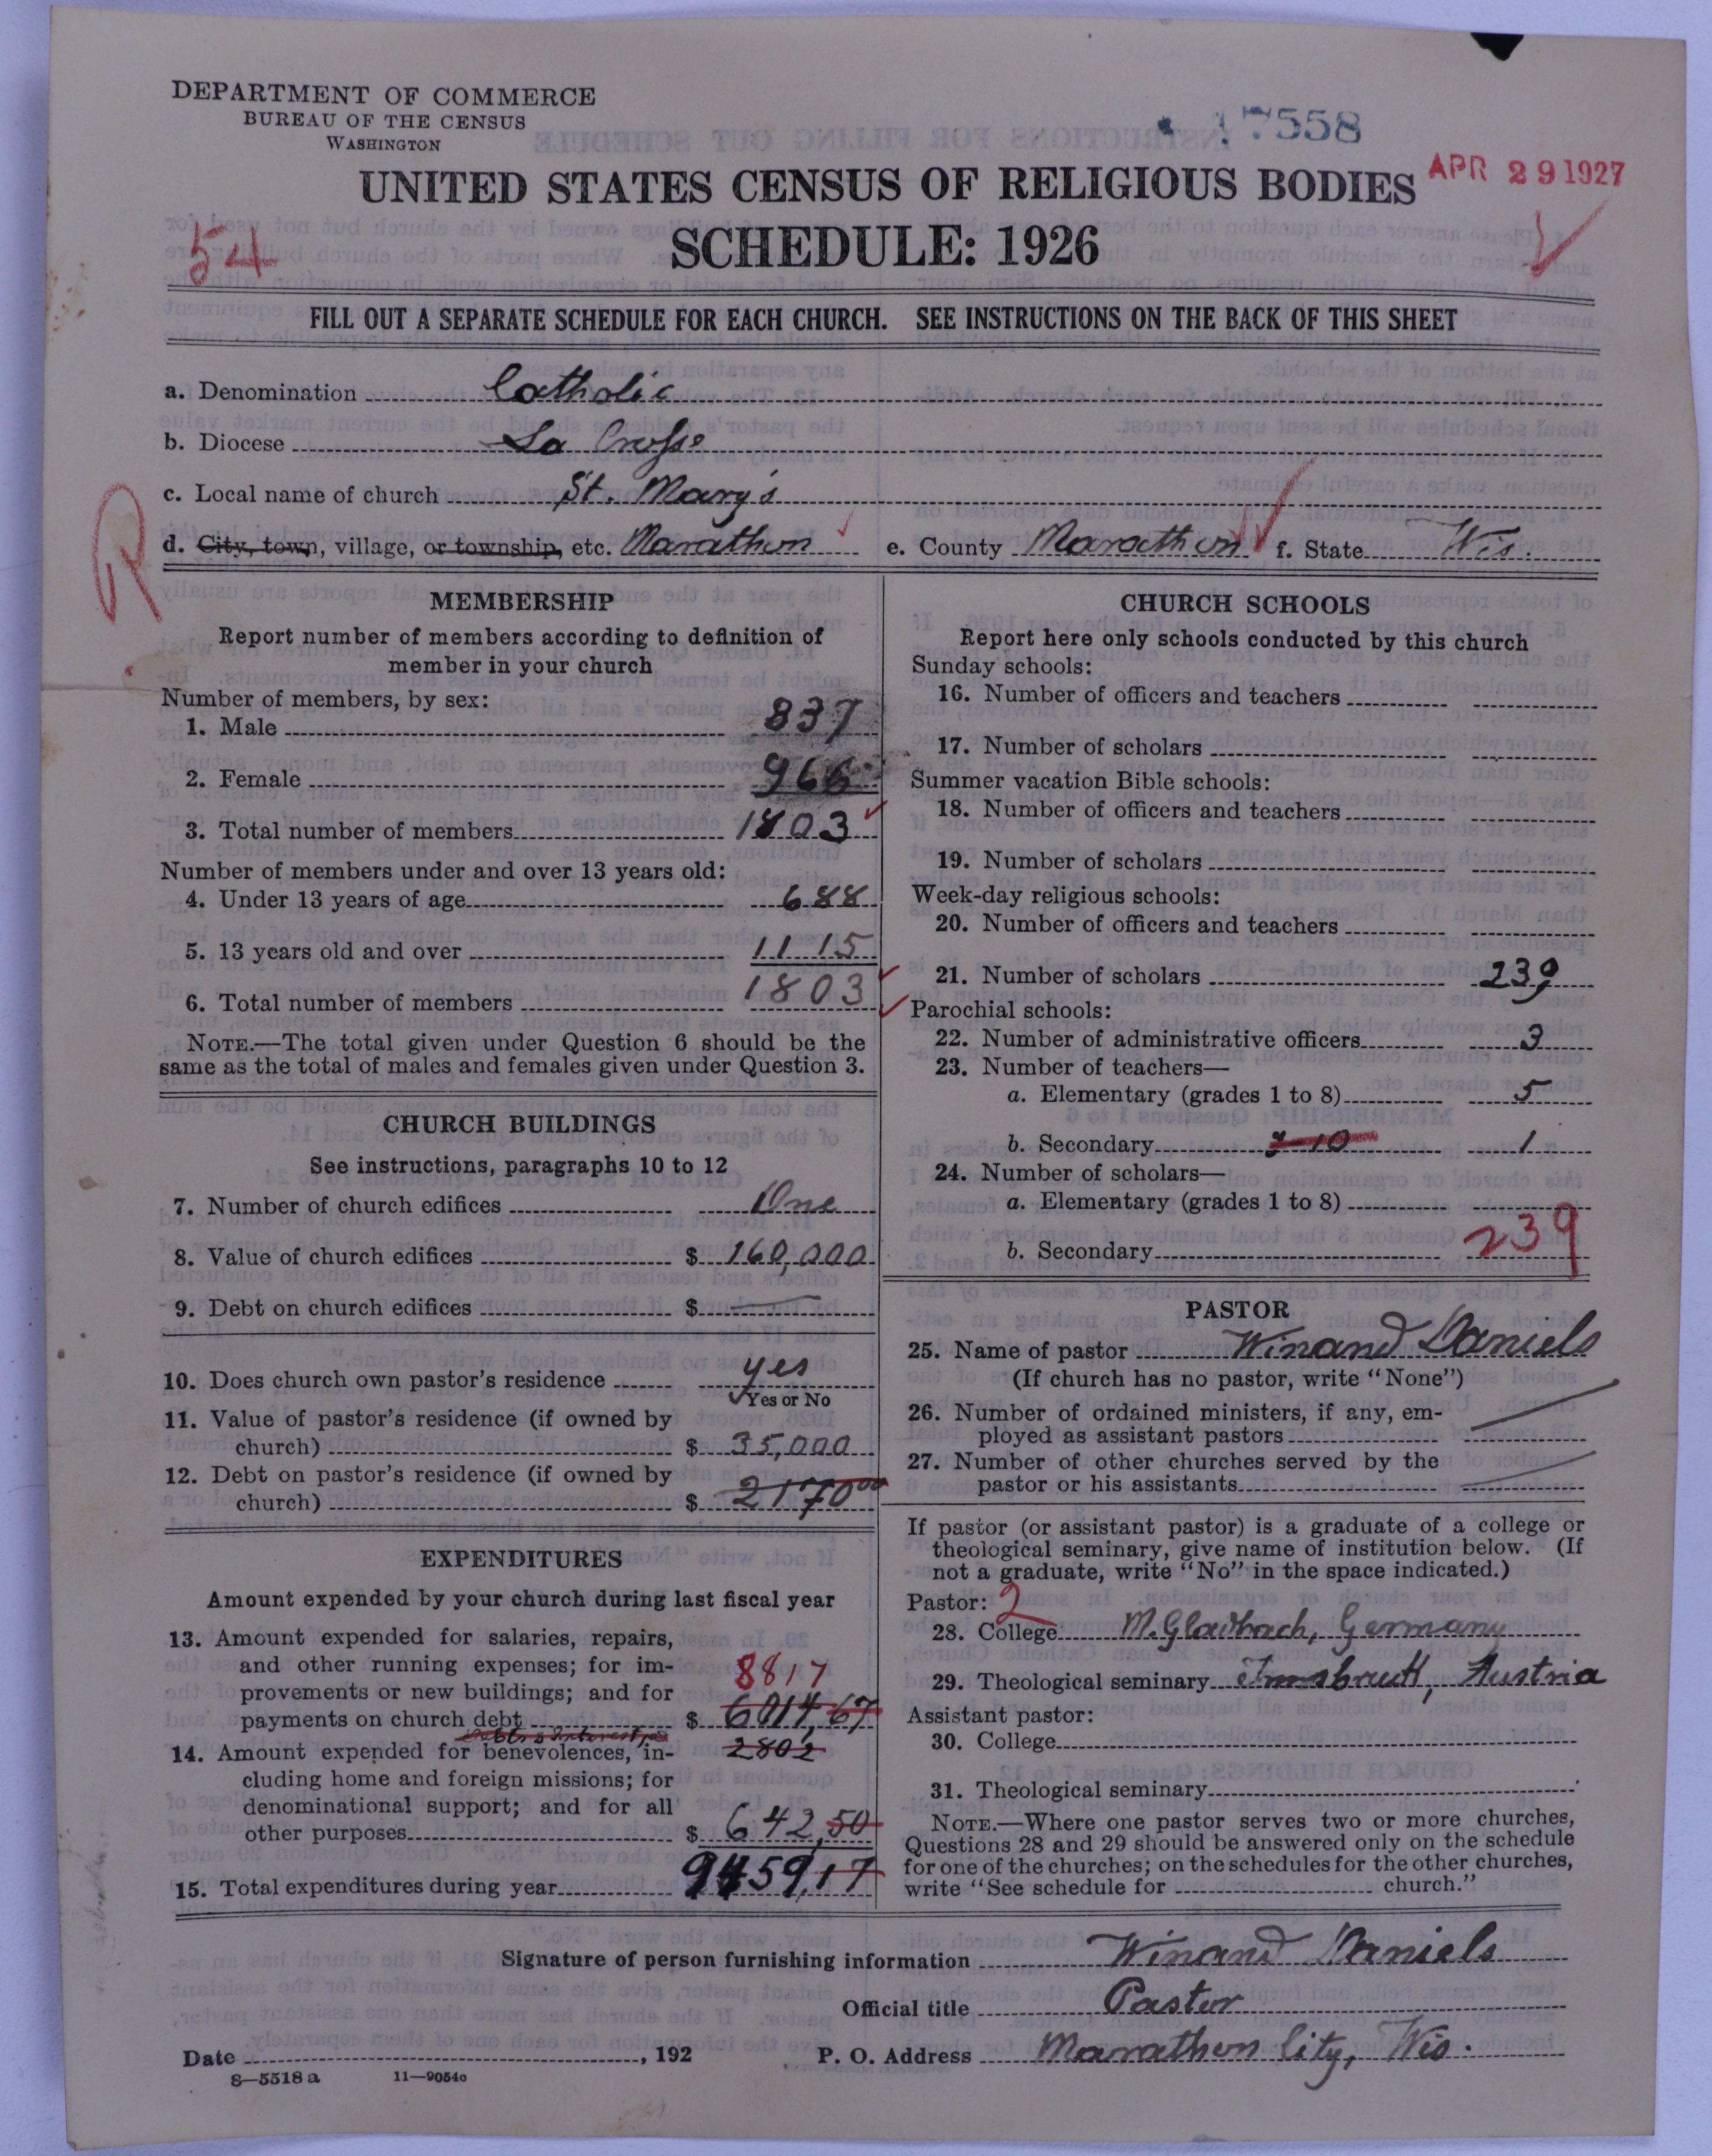 DEPARTMENT OF COMMERCE
BUREAU OF THE CENSUS
WASHINGTON
17558
APR 29 1927
UNITED STATES CENSUS OF RELIGIOUS BODIES
SCHEDULE: 1926
54
FILL OUT A SEPARATE SCHEDULE FOR EACH CHURCH. SEE INSTRUCTIONS ON THE BACK OF THIS SHEET
a. Denomination Catholic
b. Diocese La Crosse
c. Local name of church St. Mary's
R
d. City, town, village, or township, etc. Marathon e. County Marathon f. State Wis.
MEMBERSHIP
Report number of members according to definition of
member in your church
Number of members, by sex:
1. Male 837
2. Female 966
3. Total number of members 1803
Number of members under and over 13 years old:
4. Under 13 years of age 688
5. 13 years old and over 1115
6. Total number of members 1803
NOTE.—The total given under Question 6 should be the
same as the total of males and females given under Question 3.
CHURCH BUILDINGS
See instructions, paragraphs 10 to 12
7. Number of church edifices One
8. Value of church edifices $ 160,000
9. Debt on church edifices $ —
10. Does church own pastor's residence yes
Yes or No
11. Value of pastor's residence (if owned by
church) $ 35,000
12. Debt on pastor's residence (if owned by
church) $ 2170 00
EXPENDITURES
Amount expended by your church during last fiscal year
13. Amount expended for salaries, repairs,
and other running expenses; for im-
provements or new buildings; and for 8817
payments on church debt $ 6014,67
14. Amount expended for benevolences, in- 2802
cluding home and foreign missions; for
denominational support; and for all
other purposes $ 642,50
15. Total expenditures during year 9459,17
CHURCH SCHOOLS
Report here only schools conducted by this church
Sunday schools:
16. Number of officers and teachers
17. Number of scholars
Summer vacation Bible schools:
18. Number of officers and teachers
19. Number of scholars
Week-day religious schools:
20. Number of officers and teachers
21. Number of scholars 239
Parochial schools:
22. Number of administrative officers 3
23. Number of teachers—
a. Elementary (grades 1 to 8) 5
b. Secondary 10 1
24. Number of scholars—
a. Elementary (grades 1 to 8)
b. Secondary 239
PASTOR
25. Name of pastor Winand Daniels
(If church has no pastor, write "None")
26. Number of ordained ministers, if any, em-
ployed as assistant pastors —
27. Number of other churches served by the
pastor or his assistants —
If pastor (or assistant pastor) is a graduate of a college or
theological seminary, give name of institution below. (If
not a graduate, write "No" in the space indicated.)
Pastor: 2
28. College M. Gladbach, Germany
29. Theological seminary Innsbruck, Austria
Assistant pastor:
30. College
31. Theological seminary
NOTE.—Where one pastor serves two or more churches,
Questions 28 and 29 should be answered only on the schedule
for one of the churches; on the schedules for the other churches,
write "See schedule for church."
Signature of person furnishing information Winand Daniels
Official title Pastor
Date , 192 P. O. Address Marathon City, Wis.
8—5518a 11—9054c